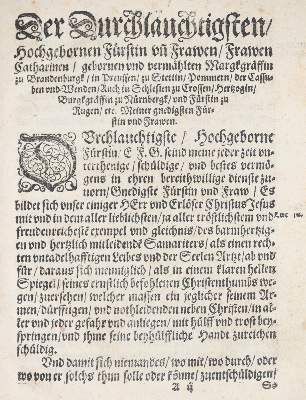 Der Durchlauchtigsten/
Hochgebornen Fürstin vñ Frawen/ Frawen
Catharinen/ gebornen vnd vermählten Marggräffin
zu Brandenburgk/ in Preussen/ zu Stettin/ Pommern/ der Cassu-
ben vnd Wenden/ Auch in Schlesien zu Crossen/ Hertzogin/
Burggräffin zu Nürnbergk/ vnd Fürstin zu
Rugen/ etc. Meiner gnedigsten Für-
stin vnd Frawen.
DVrchlauchtigste/ Hochgeborne
Fürstin/ E. F. G. seind meine jeder zeit vn-
verdrossene/ schüldige/ vnd bestes vermö-
gens in ehren bereithwillige dienste zu-
uorn/ Gnedigste Fürstin vnd Fraw/ Es
bildet sich vnser einiger HErr vnd Erlöser Christus Jesus
mit vnd in dem aller lieblichsten/ ja aller tröstlichstem vnd
freudenreicheste exempel vnd gleichnis/ des barmhertzig-
en vnd hertzlich mitleidende Samariters/ als einen rech-
ten vntadelhafftigen Leibes vnd der Seelen Artzt/ ab vnd
für/ daraus sich menniglich/ als in einem klaren hellen
Spiegel/ seines ernstlich befohlenen Christenthumbs we-
gen/ zuersehen/ welcher massen ein jeglicher seinem Ar-
men/ dürfftigen/ vnd nothleidenden neben Christen/ in al-
ler vnd jeder gefahr vnd anliegen/ mit hülff vnd trost bey-
springen/ vnd ihme seine behülffliche Handt zureichen
schüldig.
Vnd damit sich niemandes/ wo mit/ wo durch/ oder
wo von er solchs thun solle oder könne/ zuentschüldigen/
A ij
So
Luc. 10.